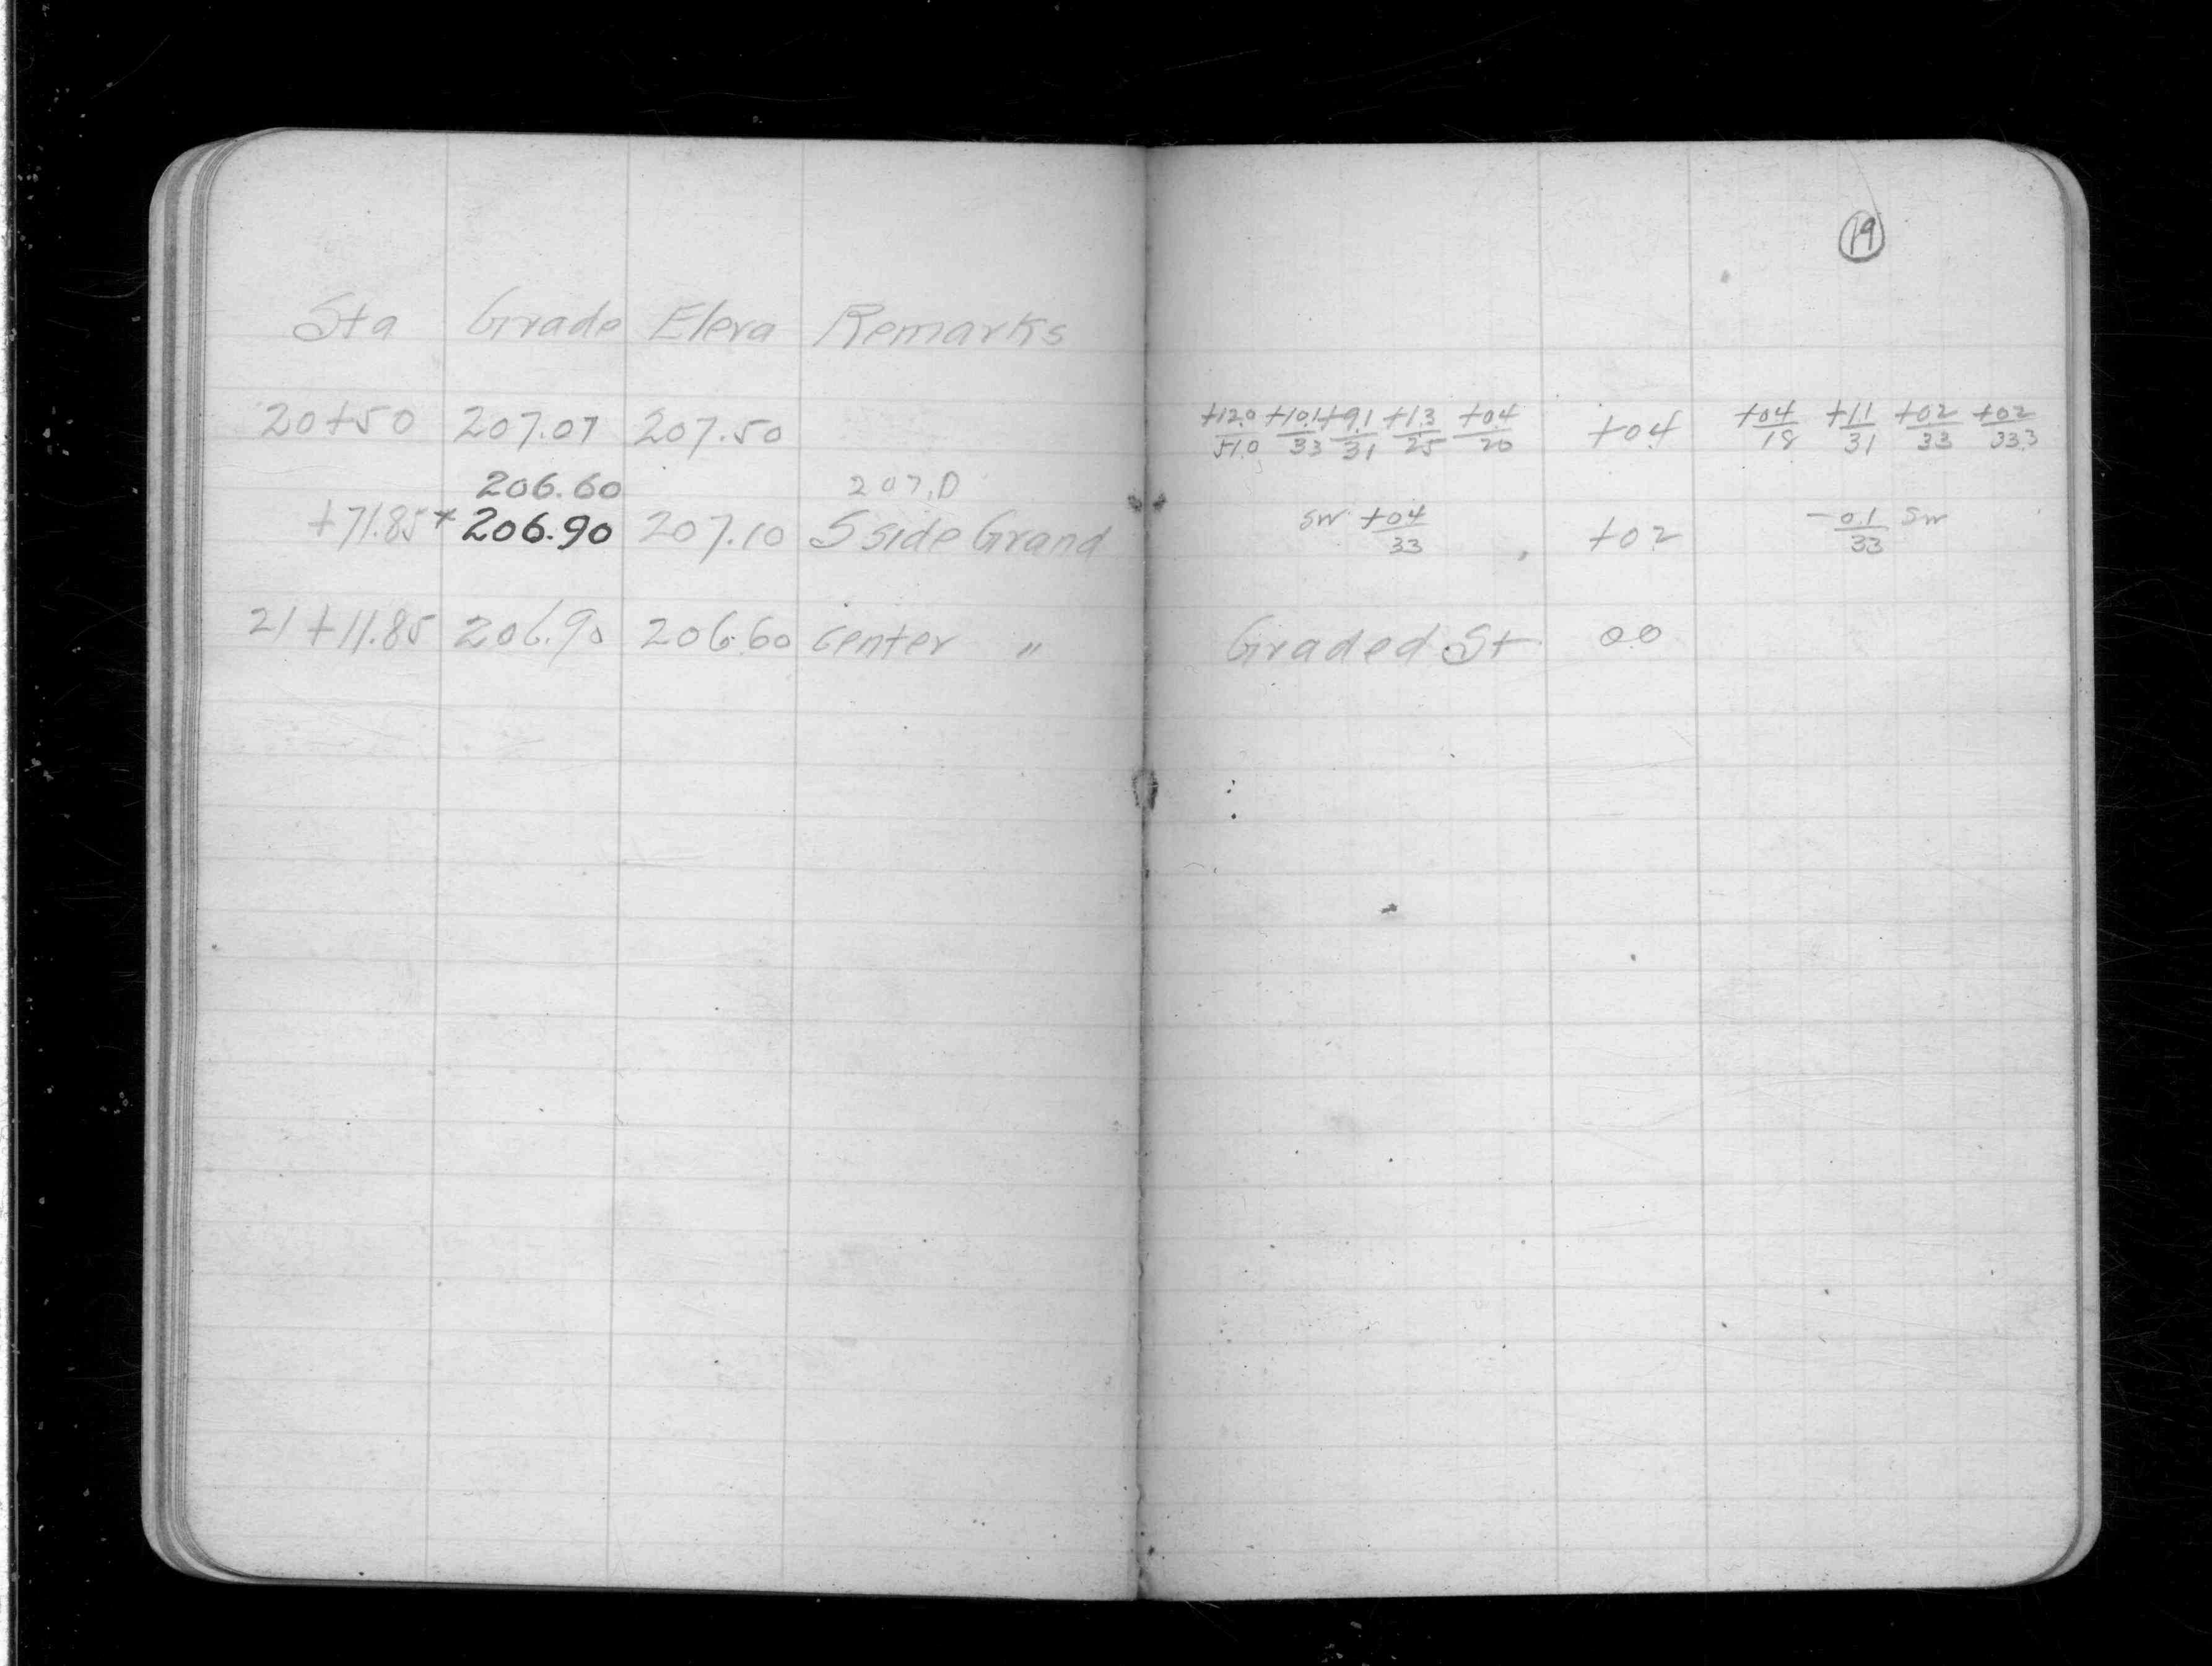 19
Sta Grade Eleva Remarks
20+50 207.07 207.50 +12.0/51.0 +10.1/33 +9.1/31 +1.3/25 +0.4/20 +0.4 +0.4/18 +1.1/31 +0.2/33 +0.2/33.3
206.60 207.0
+71.85 * 206.90 207.10 S side Grand SW +0.4/33 +0.2 -0.1/33 SW
21+11.85 206.90 206.60 center " Graded St 0.0